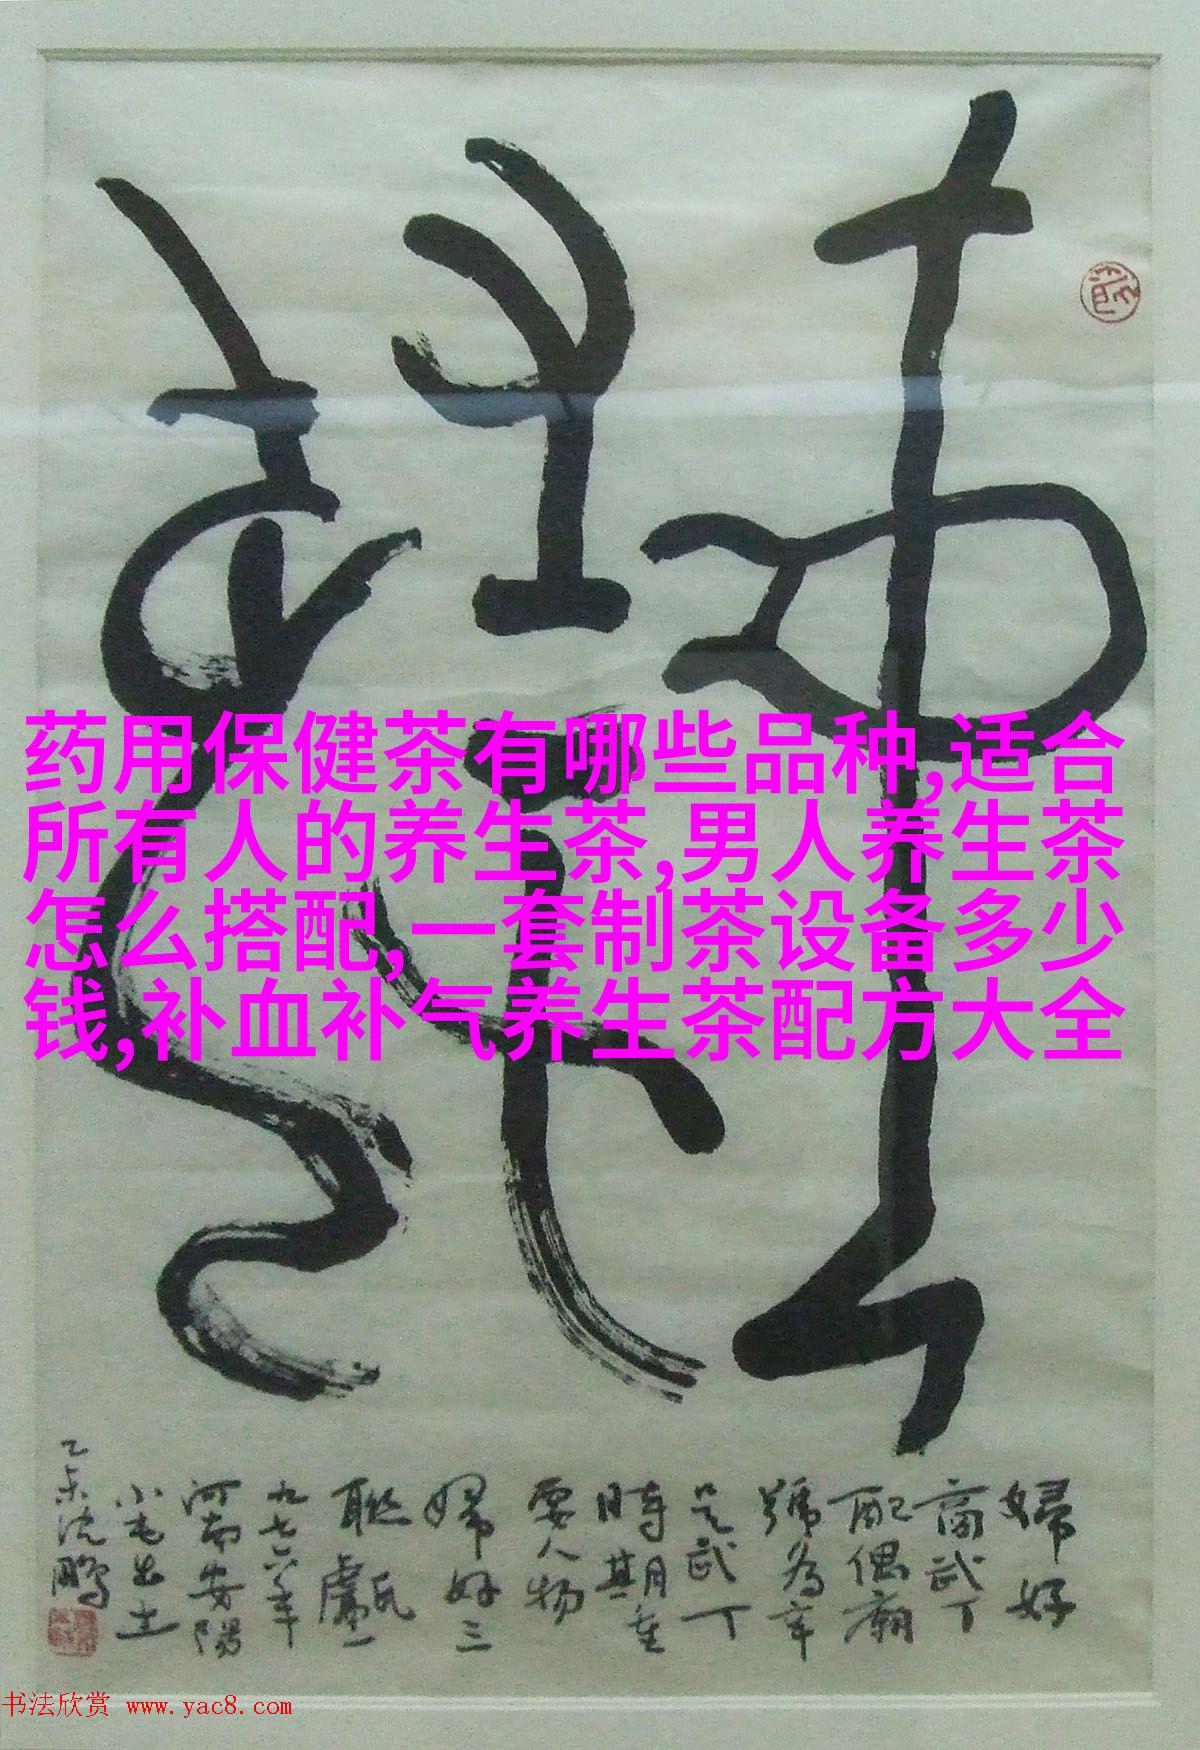 药用保健茶有哪些品种,适合
所有人的养生茶,男人养生茶
怎么搭配,一套制茶设备多少
钱,补血补气养生茶配方大全
婦好
商武丁
配偶廟
號为辛
是武丁
時期重
要人物
婦好三
聯甗一
九七六年
河南安陽
小屯出土
乙未沈鵬
书法欣赏 www.yac8.com